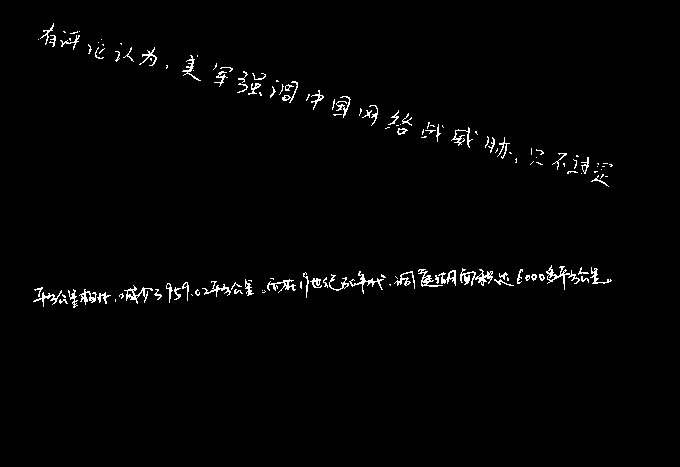 有评论认为，美军强调中国网络战威胁，只不过是
平方公里相比，减少了959.02平方公里。而在19世纪50年代，洞庭湖面积达6000多平方公里。